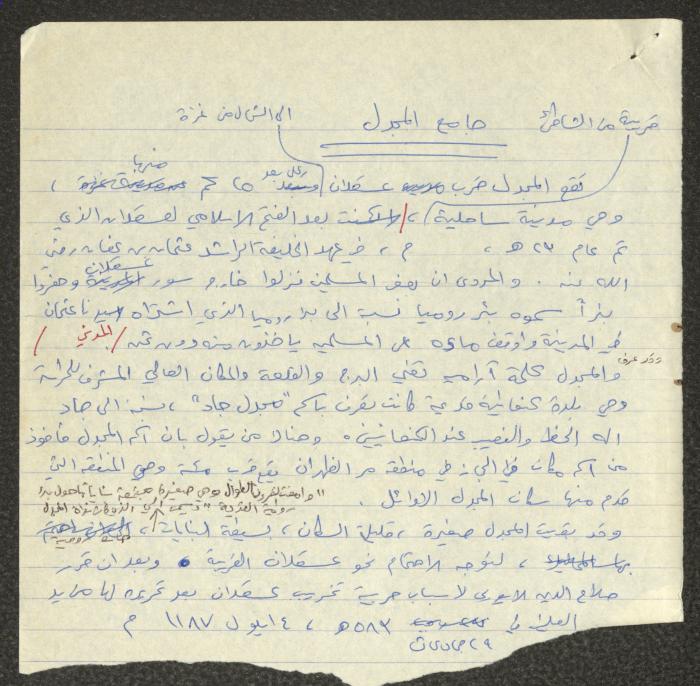 قريبة من الشاطئ
جامع المجدل
الى الشمال من غزة
تقع المجدل قرب عسقلان وعلى بعد ٢٥ كم منها ،
وهي مدينة ساحلية ، سكنت بعد الفتح الاسلامي لعسقلان الذي
تم عام ٢٣ هـ ، م ، في عهد الخليفة الراشد عثمان بن عفان رضي
الله عنه . والمروى ان بعض المسلمين نزلوا خارج سور عسقلان وحفروا
بئراً سموه بئر روميا نسبة الى بئر روميا الذي اشتراه سيدنا عثمان
في المدينة واوقف ماءه على المسلمين ياخذون منه دون ثمن
وقد عرف
والمجدل كلمة آرامية تعني البرج والقلعة والمكان العالي المشرف للحراسة
وهي بلدة كنعانية قديمة كانت تعرف باسم "مجدل جاد" ، نسبة الى جاد
اله الحظ والنصيب عند الكنعانيين . وهناك من يقول بان اسم المجدل مأخوذ
من اسم مكان في منطقة مر الظهران يقع قرب مكة وهي المنطقة التي
قدم منها سكان المجدل الاوائل .
وقد بقيت المجدل صغيرة ، قليلة السكان ، بسيطة البنايات ،
، لتوجه الاهتمام نحو عسقلان القريبة . وبعد ان قرر
صلاح الدين الايوبي لاسباب حربية تخريب عسقلان بعد تحريره لها من يد
٥٨٣ هـ ، ٤ ايلول ١١٨٧ م